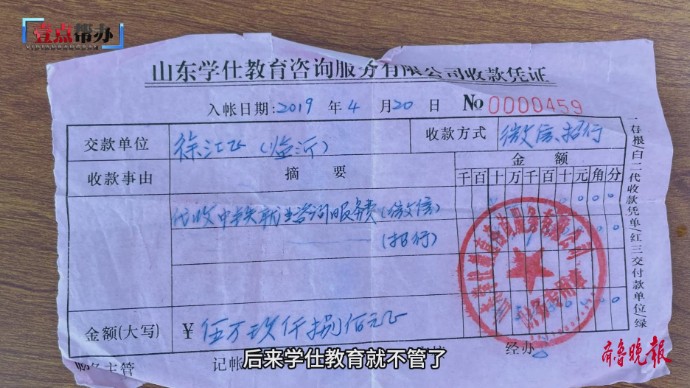 壹点帮办
山东学仕教育咨询服务有限公司收款凭证
入帐日期:2019 年 4 月 20 日 No 0000459
交款单位 徐江 (临沂) 收款方式 微信、招行
收款事由 摘 要 金 额
千百十万千百十元角分
代收中关就业咨询服务费(微信)
(招行)
金额(大写) ¥ 伍万玖仟捌佰元正
记帐 经办
一存根(白)二代收款凭单(红)三交付款单位(绿
后来学仕教育就不管了
齐鲁晚报